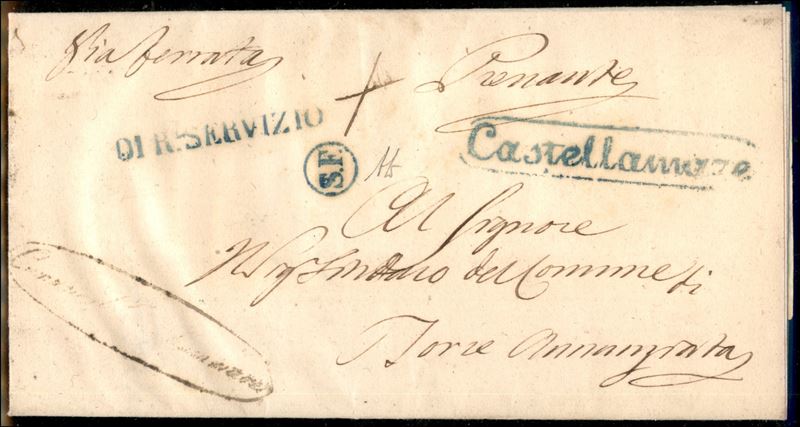 Via ferrata
Premante
DI R. SERVIZIO
Castellamare
S.F.
Al Signore
Sig Sindaco del Comune di
Torre Annunziata